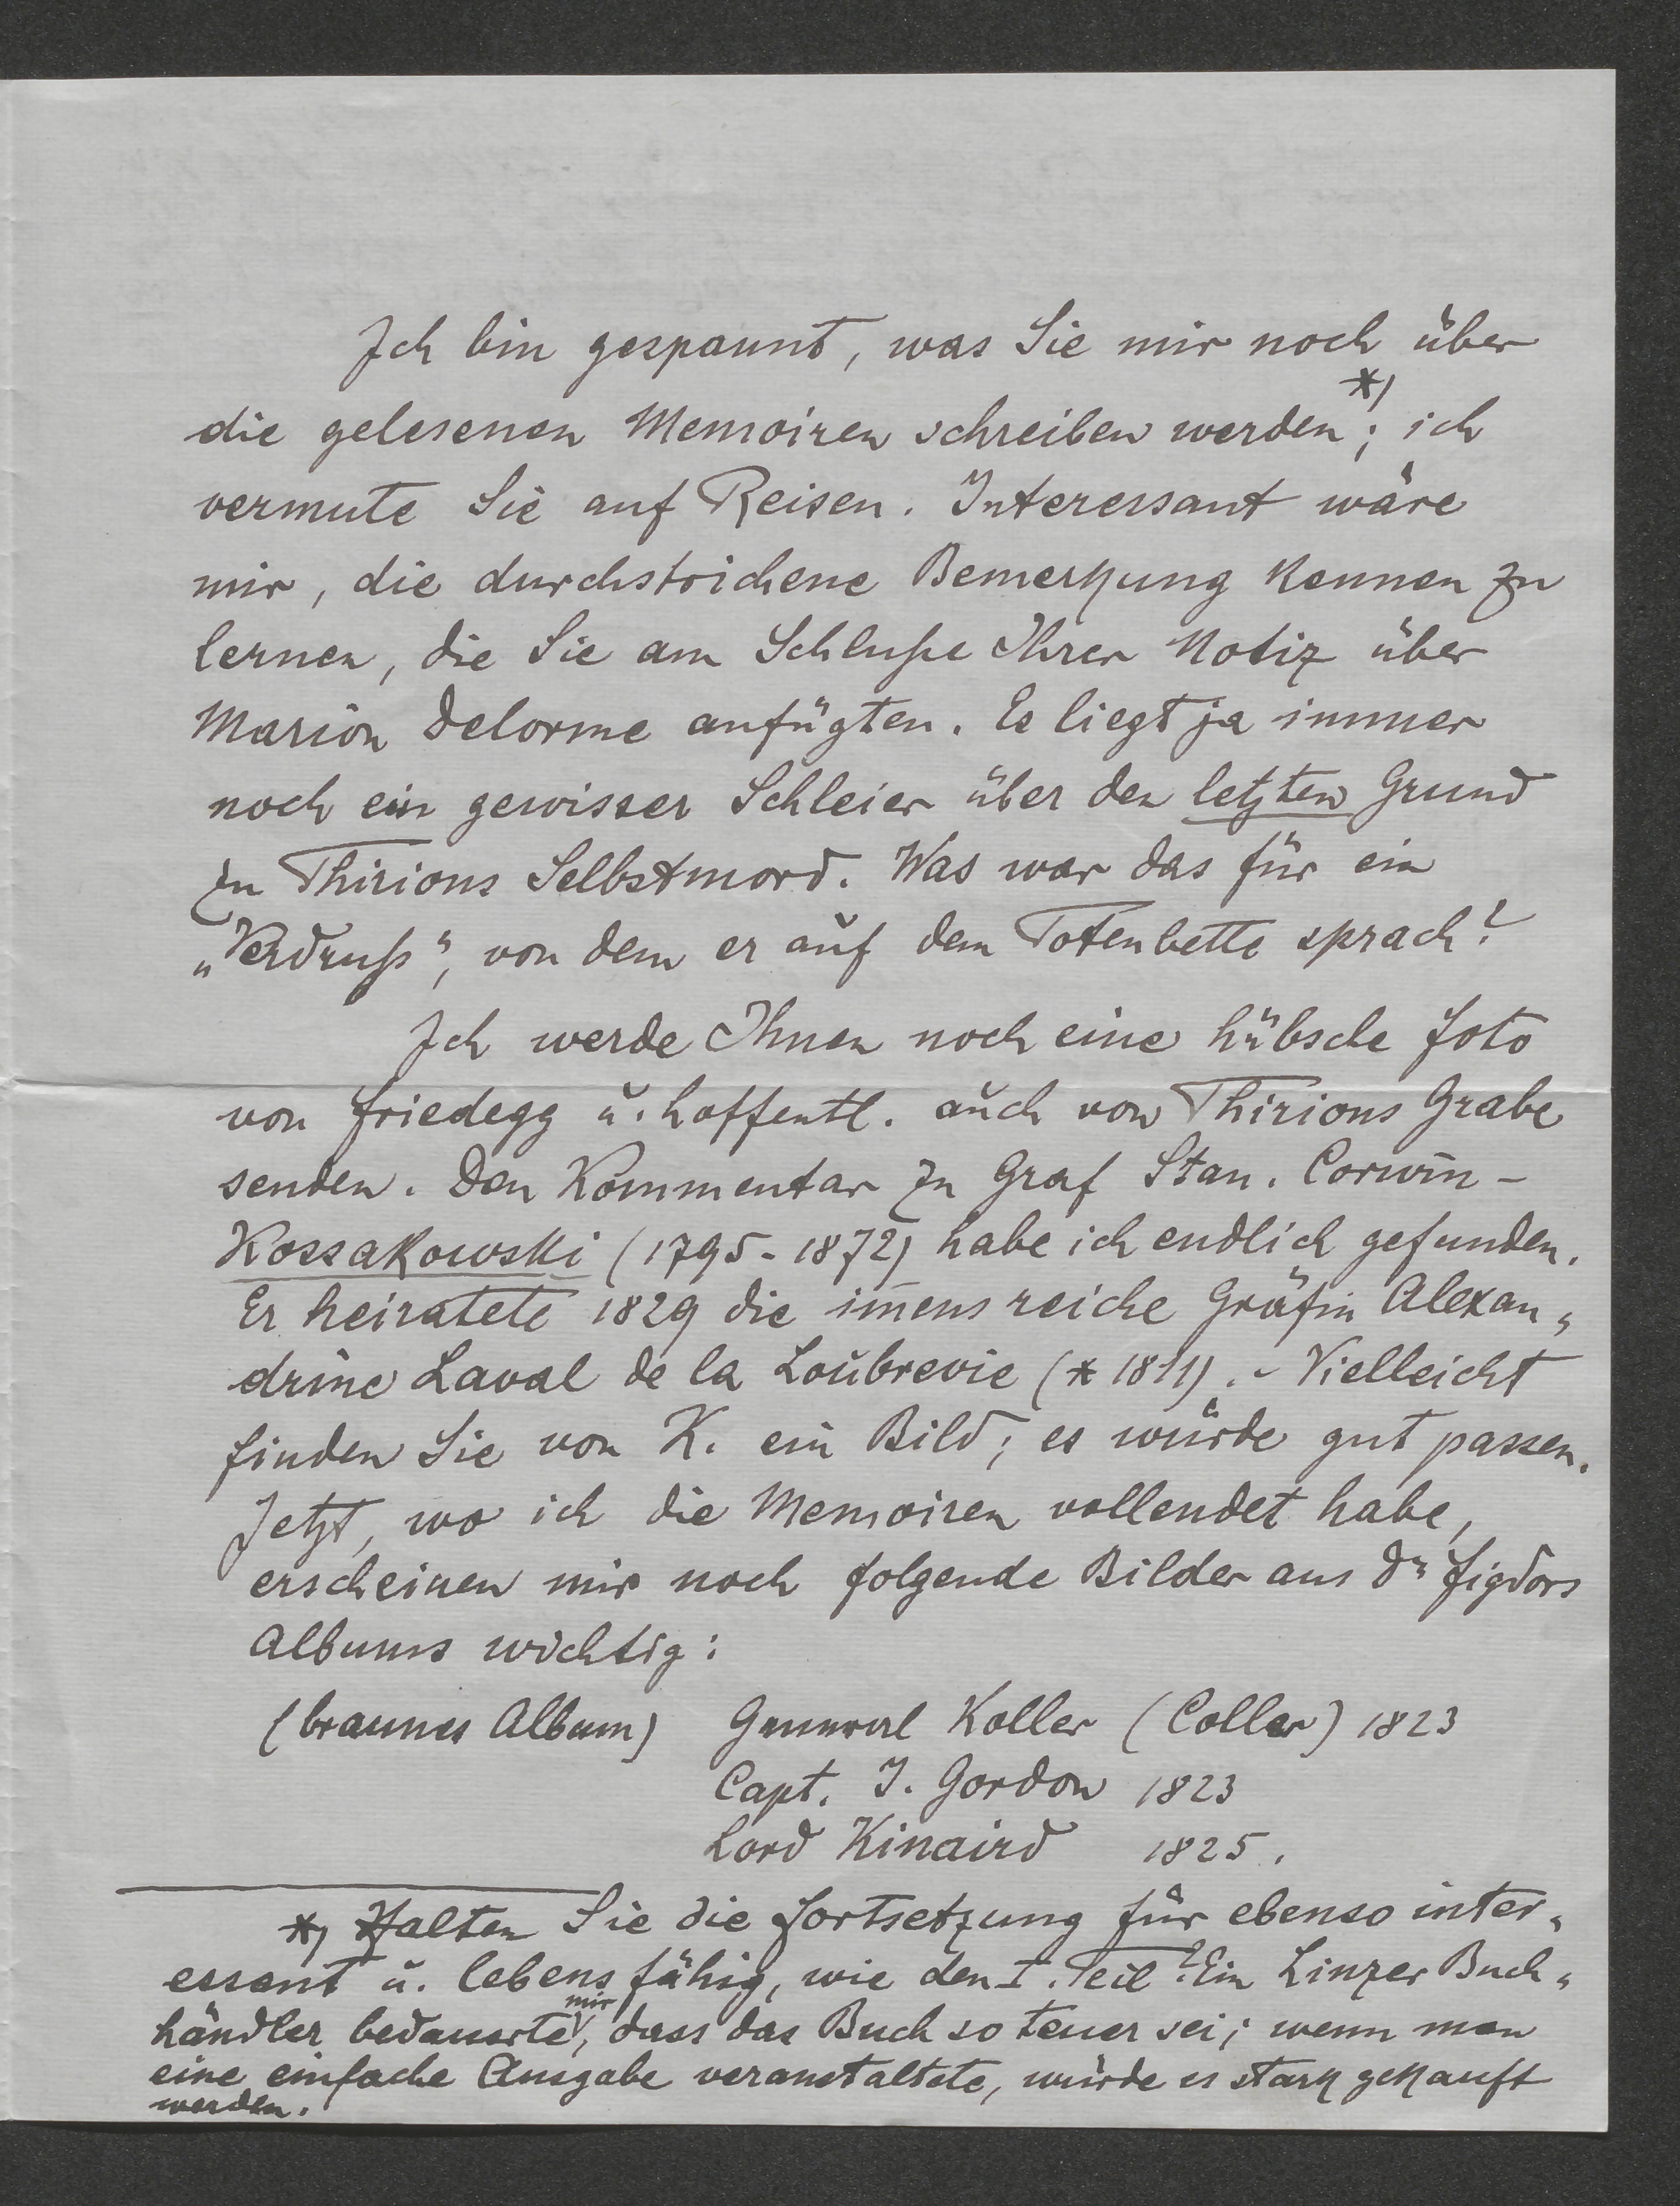 Ich bin gespannt, was Sie mir noch über
die gelesenen Memoiren schreiben werden *); ich
vermute Sie auf Reisen. Interessant wäre
mir, die durchstrichene Bemerkung kennen zu
lernen, die Sie am Schluße Ihrer Notiz über
Marion Delorme anfügten. Es liegt ja immer
noch ein gewisser Schleier über den letzten Grund
zu Thirions Selbstmord. Was war das für ein
„Verdruß“, von dem er auf dem Totenbette sprach?
Ich werde Ihnen noch eine hübsche Foto
von Friedegg u. hoffentl. auch von Thirions Grabe
senden. Den Kommentar zu Graf Stan. Corwin-
Kossakowski (1795-1872) habe ich endlich gefunden.
Er heiratete 1829 die im̅ens reiche Gräfin Alexan„
drine Laval de la Loubrevie (* 1811). - Vielleicht
finden Sie von K. ein Bild; es würde gut passen.
Jetzt, wo ich die Memoiren vollendet habe,
erscheinen mir noch folgende Bilder aus Dr Figdors
Albums wichtig:
(braunes Album) General Koller (Coller) 1823
Capt. J. Gordon 1823
Lord Kinaird 1825.
*) Halten Sie die Fortsetzung für ebenso inter„
essant u. lebensfähig, wie den I. Teil? Ein Linzer Buch„
händler bedauerte mir, dass das Buch so teuer sei; wenn man
eine einfache Ausgabe veranstaltete, würde es stark gekauft
werden.